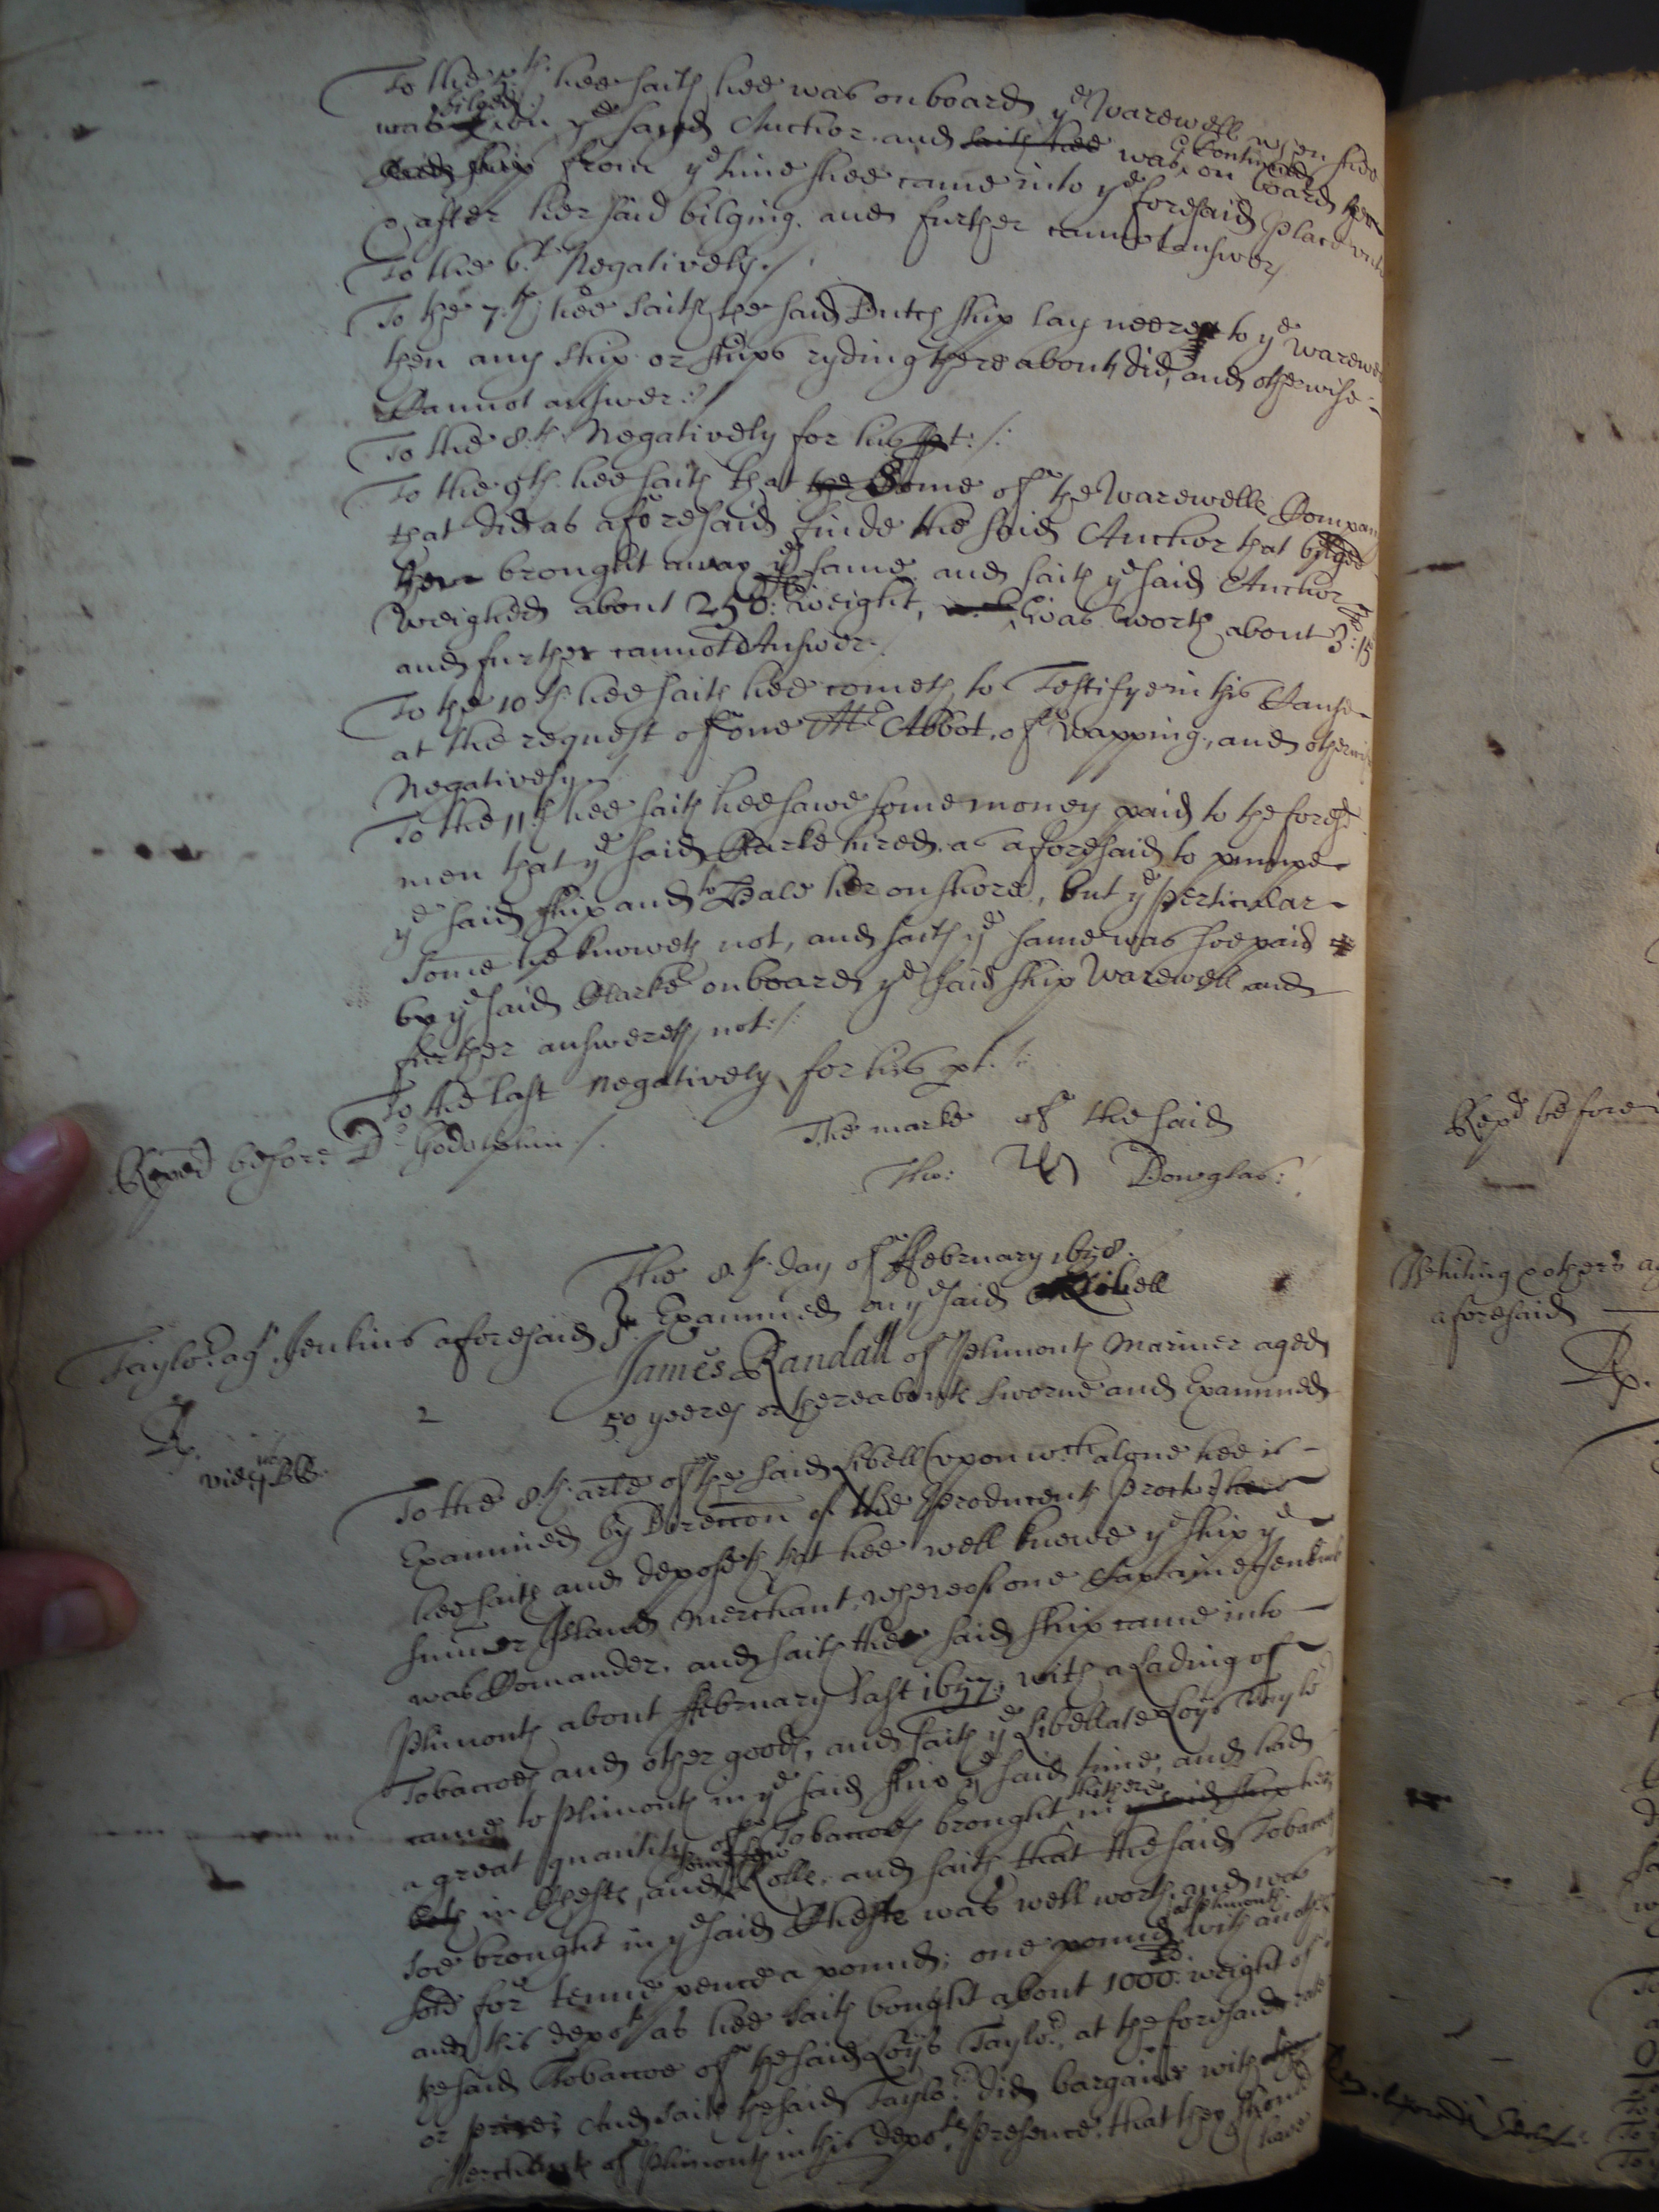 To the 5th. hee saith hee was on board ye Warewell when shee
was bilged on ye said Anchor. and saith hee was & continued on board her
said ship from ye time shee came into ye foresaid place untill
after her said bilging. and further cannot answer/
To the 6.th Negatively./
To the 7.th hee saith the said Dutch ship lay neerer to ye Warewell
then any ship or ships ryding there abouts did, and otherwise
Cannot answer:/
To the 8.th Negatively for his pt:/:
To the 9th. hee saith that the Some of the Warewells Company
that did as aforesaid finde the said Anchor that bilged
her brought away ye same. and saith ye said Anchor
Weighed about 250: lb weight, was worth about 3: 15
and further cannot Answer./
To the 10th. hee saith hee cometh to Testifye in this Cause
at the request of one Mr Abbot, of Wapping, and otherwise
Negatively./
To the 11th hee saith hee sawe some money paid to the foresd
men that ye said Clarke hired. as aforesaid to pumpe
ye said ship and to Hale her on shore, but ye perticular
Some he knoweth not, and saith ye same was soe paid
by ye said Clarke on board ye said ship Warewell and
further answereth not:/:
To the last Negatively for his pt.:
Reped before Dr Godolphin./.
The marke of the said
Tho: Dowglas:/
The 8.th day of ffebruary 1658.
Examined on ye said Libell
Taylor. agt. Jenkins aforesaid
James Randall of Plimouth Mariner aged
2
50 yeeres or thereabouts sworne and Examined
To the 8.th arle of the said Libell (upon wch. alone hee is
Examined by Direccon of the Producents Proctor) hee
hee saith and deposeth that hee well knowe ye ship ye
Summer Island Merchant, whereof one Captaine Jenkins
was Comander. and saith the said ship came into
Plimouth about ffebruary last 1657, with a Lading of
Tobaccoes and other goods, and saith ye Libellate Loys Taylor
came to Plimouth in ye said ship ye said time, and had
a great quantity of Tobaccoes brought in thither ye said ship
both in Chests, and Rolls. and saith that the said Tobaccoes
soe brought in ye said Chests was well worth and was
sold for tenne pence a pound; one pound with another at Plimouth
and this depot as hee saith bought about 1000: lb. weight of
the said Tobaccoe of the said Loys Taylor, at the foresaid rate
or price; And saith the said Taylor did bargaine with
Merchants of Plimouth in this depots presence, that they should
have
Repd before
Whiting & others agt
aforesaid